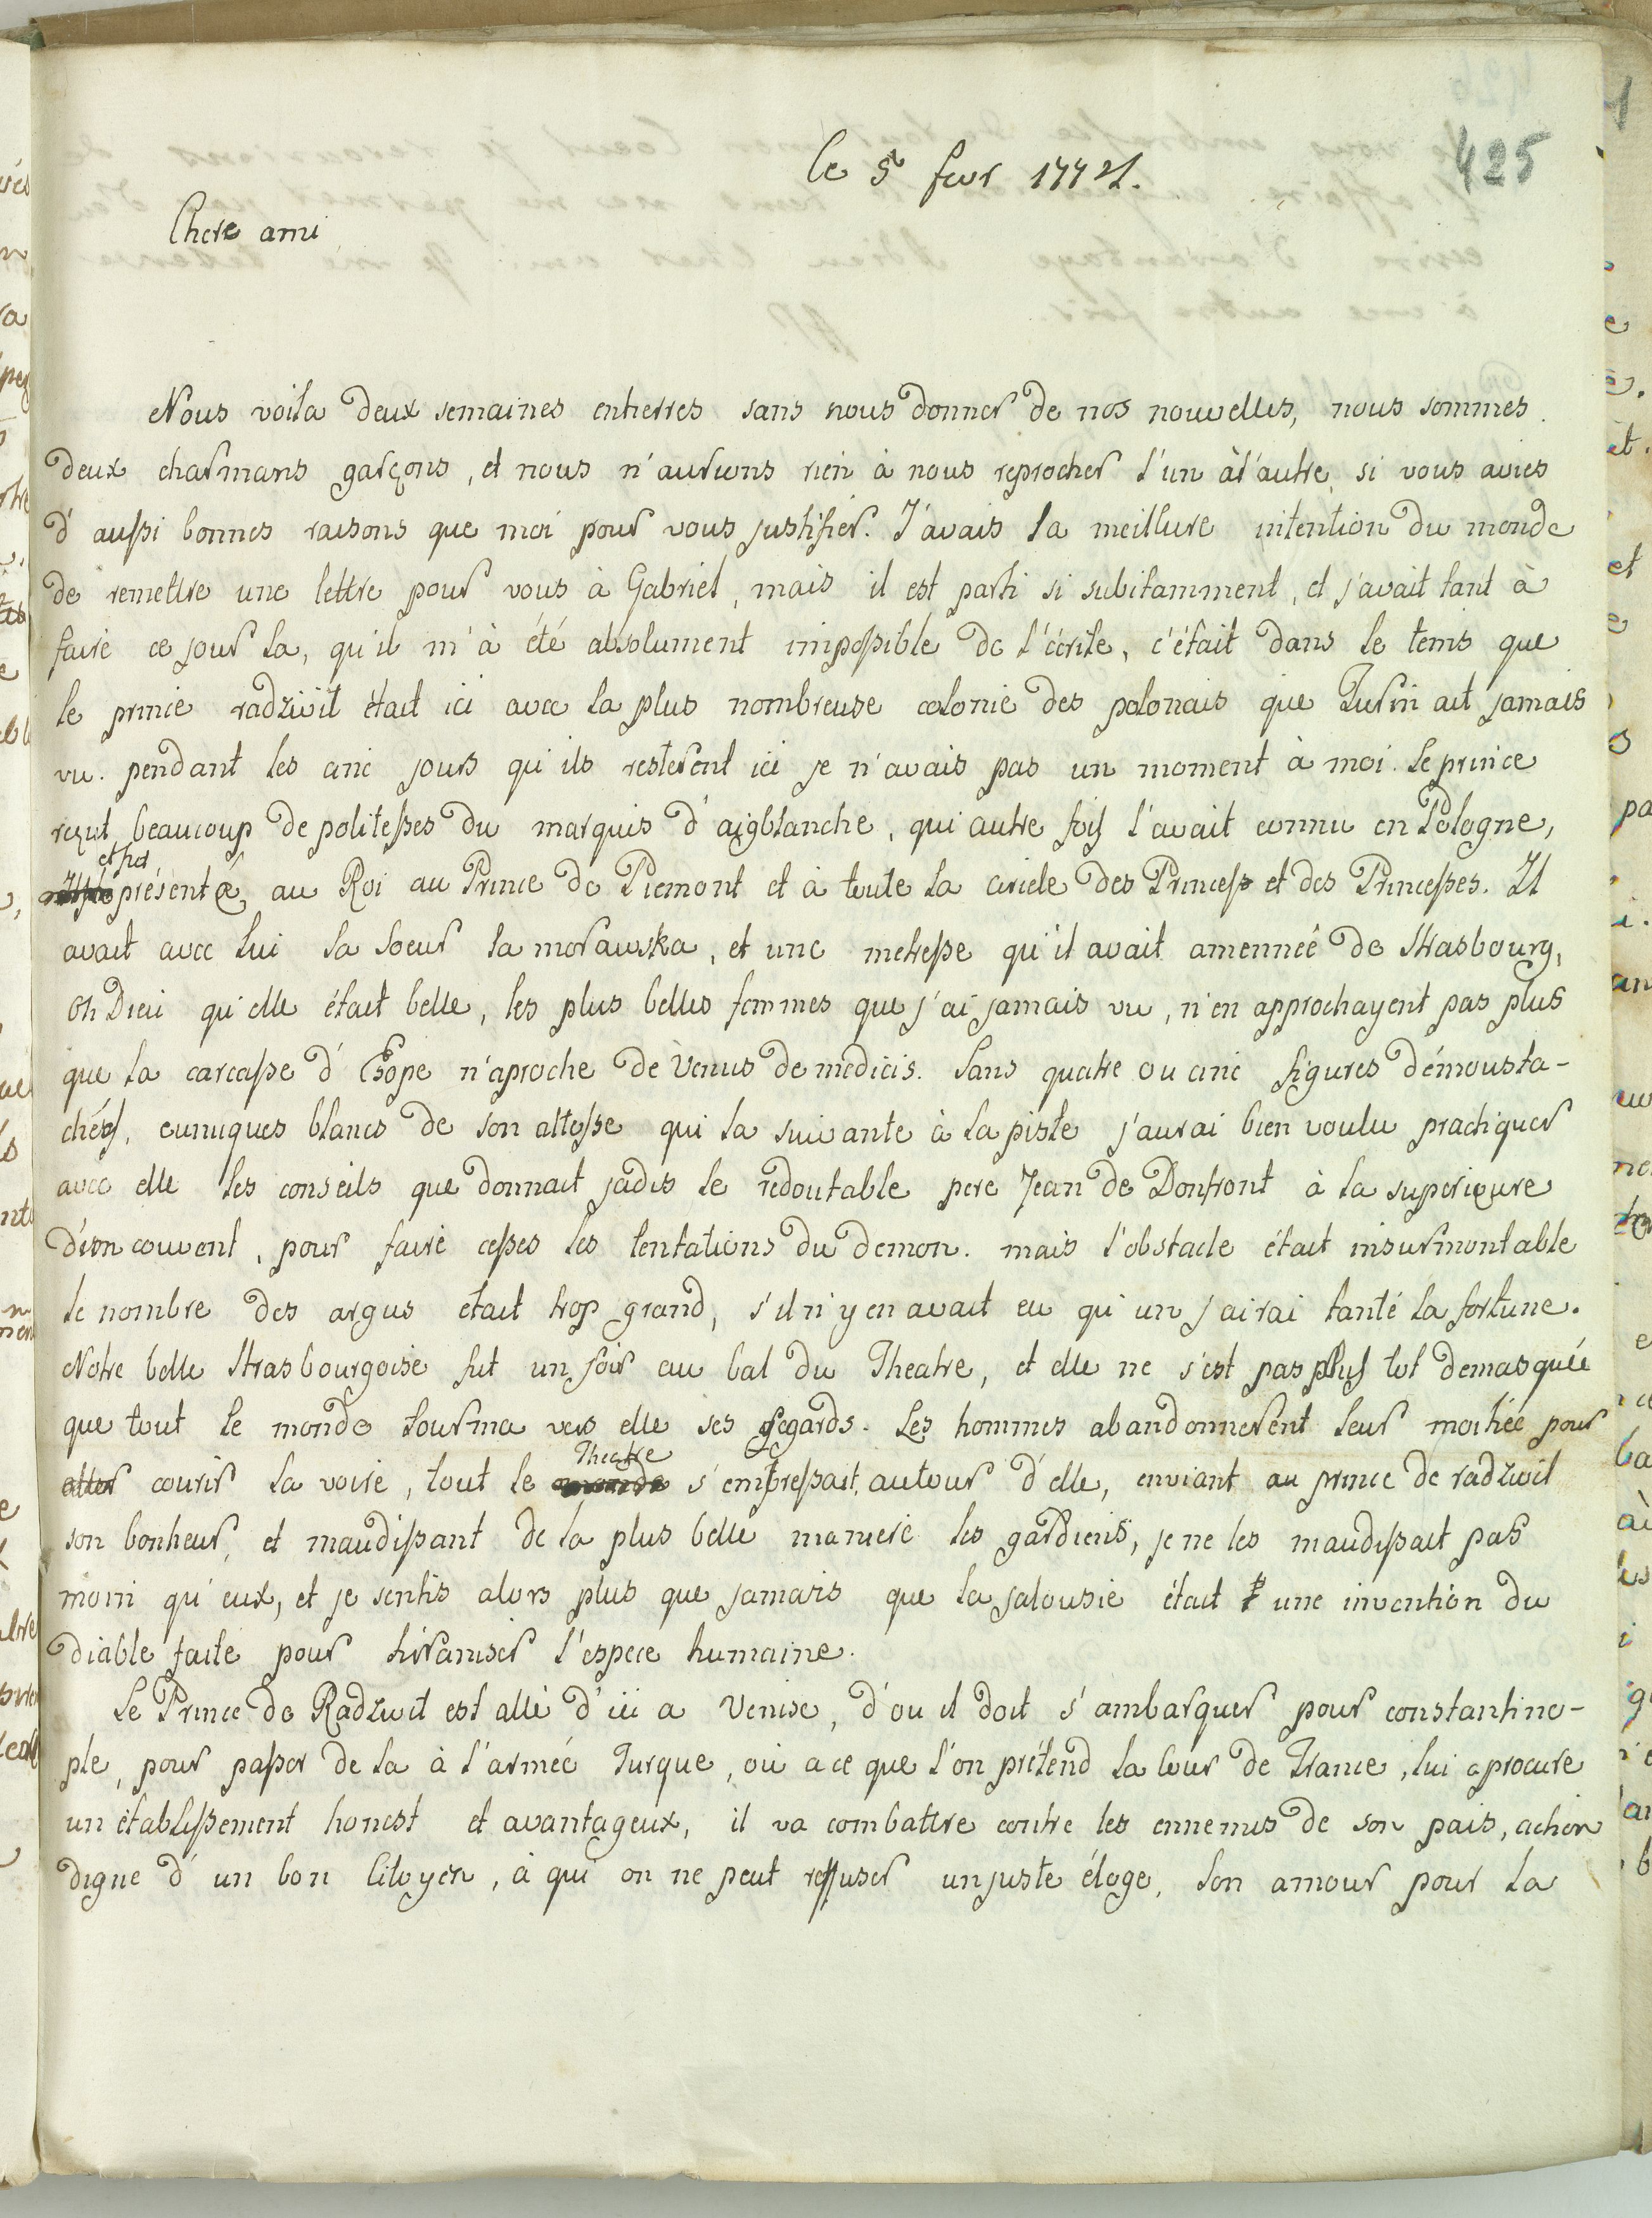 425
le 5 fevr 1774.
Chere ami
Nous voila deux semaines entierres sans nous donner de nos nouvelles, nous sommes
deux charmans garçons, et nous n'aurions rien à nous reprocher l'un à l'autre, si vous avies
d'aussi bonnes raisons que moi pour vous justifier. J'avais la meillure intention du monde
de remettre une lettre pour vous à Gabriel, mais il est parti si subitamment, et j'avait tant à
faire ce jour la, qu'il m'à été absolument impossible de l'écrite, c'était dans le tems que
le prince radziwil était ici avec la plus nombreuse colonie des polonais que Turin ait jamais
vu. pendant les cinc jours qu'ils resterent ici je n'avais pas un moment à moi. Le prince
reçut beaucoup de politesses du marquis d'aigblanche, qui autre fois l'avait connu en Pologne,
et fut
présenté au Roi au Prince de Piemont et à toute la circle des Princess et des Princesses. Il
avait avec lui sa soeur la morawska, et une metresse qu'il avait amenneé de Strasbourg,
Oh Dieu qu'elle était belle, les plus belles femmes que j'ai jamais vu, n'en approchayent pas plus
que la carcasse d'Esope n'aproche de Venus de medicis. Sans quatre ou cinc figures démousta-
chés, eunuques blancs de son altesse qui la suivante à la piste j'aurai bien voulu practiquer
avec elle les conseils que donnait jadis le redoutable pere Jean de Donfront à la superieure
d'un couvent, pour faire cesses les tentations du demon. mais l'obstacle était insurmontable
le nombre des argus etait trop grand, s'il n'y en avait eu qu'un j'airai tanté la fortune.
Notre belle Strasbourgoise fut un soir au bal du Theatre, et elle ne s'est pas plus tot demasquée
que tout le monde tourna vers elle ses regards. Les hommes abandonnerent leur moitiée pour
aller courir la voire, tout le monde Theatre s'empressait autour d'elle, enviant au prince de radziwil
son bonheur, et maudissant de la plus belle maniere les gardiens, je ne les maudissait pas
moin qu'eux, et je sentis alors plus que jamais que la jalousie était une invention du
diable faite pour tiraniser l'espece humaine.
Le Prince de Radziwil est allé d'ici a Venise, d'ou il doit s'ambarquer pour constantino-
ple, pour passer de la à l'armée Turque, ou a ce que l'on prétend la Cour de France, lui a procure
un établissement honest et avantageux, il va combattre contre les ennemis de son pais, action
digne d'un bon Citoyen, à qui on ne peut reffuser un juste éloge, son amour pour la